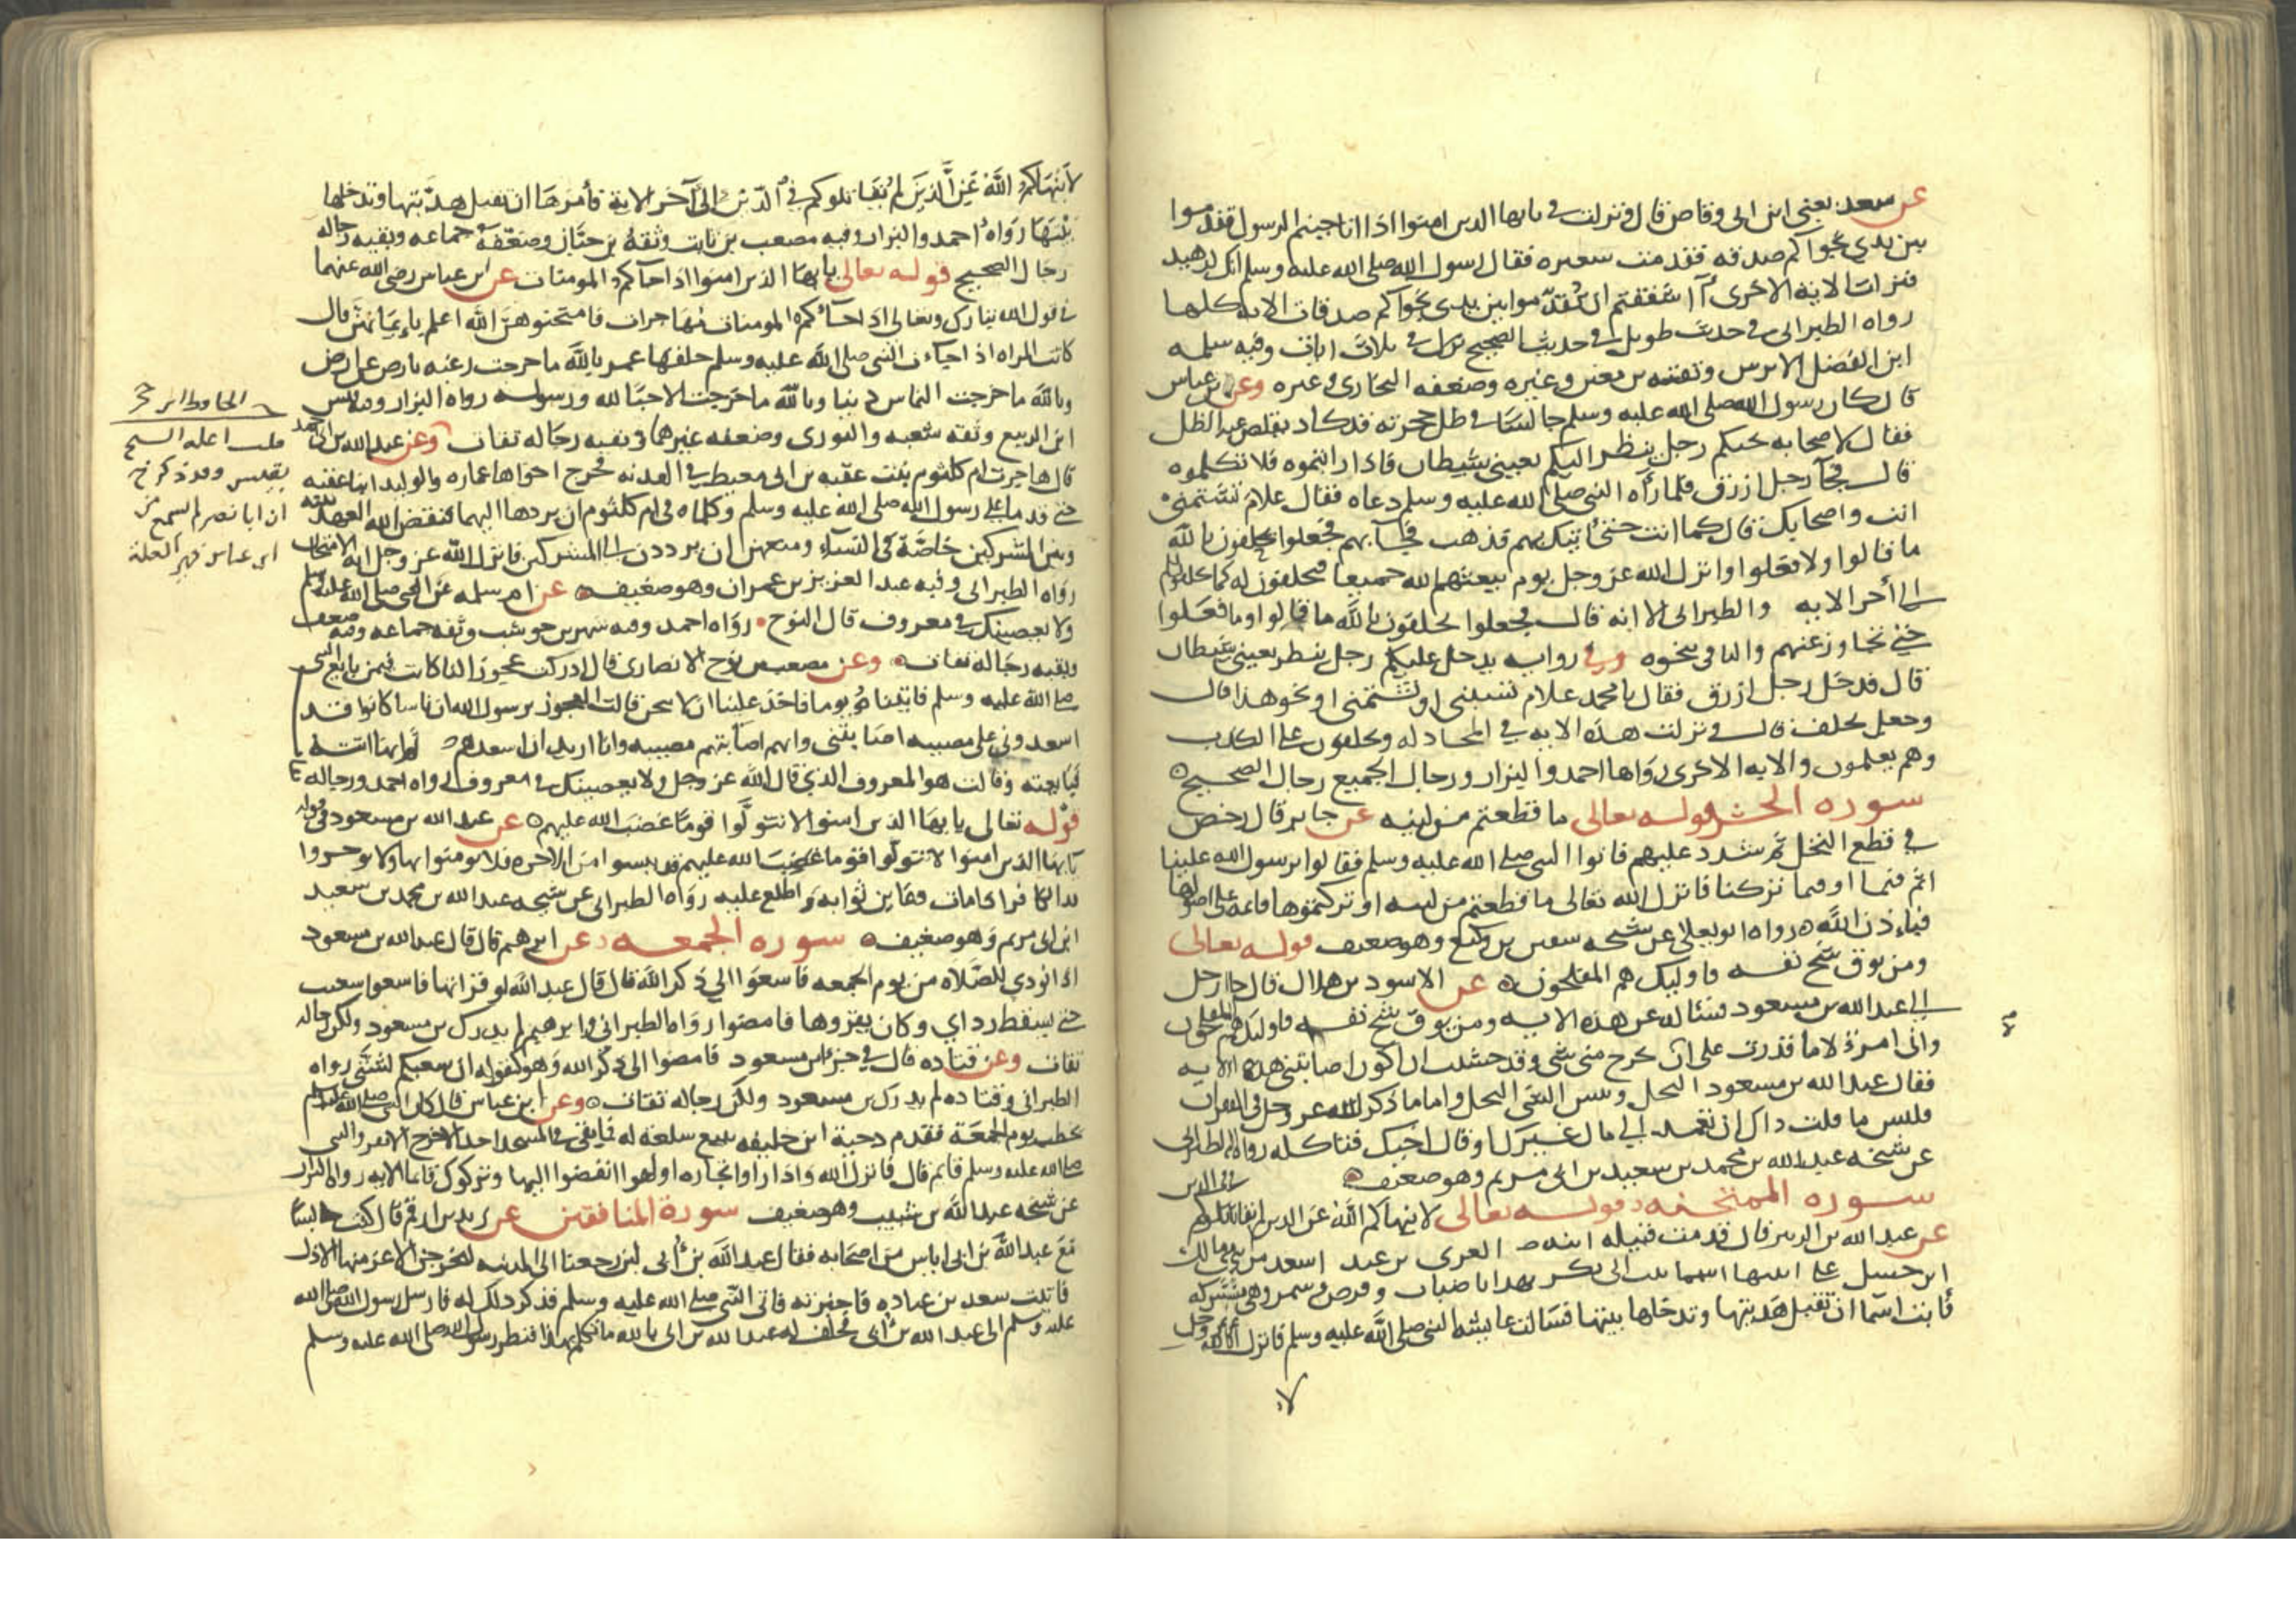 عن سعد يعني ابن ابى وقاص قال فى نزلت يايها الذين امنوا اذا ناجيتم الرسول فقدموا
بين يدي نجواكم صدقه فقدمت سعيره فقال رسول الله صلى الله عليه وسلم انك لزهيد
فنزلت الاية الاخرى أاشفقتم ان تقدموا بين يدي نجواكم صدقات الايه كلها
رواه الطبرانى فى حديث طويل فى حديث الصحيح نزل فى ثلاث ايات وفيه سلمه
ابن الفضل الابرش وثقه بن معين وغيره وضعفه البخارى وغيره وعن بن عباس
قال كان رسول الله صلى الله عليه وسلم جالسا فى ظل حجرته قد كاد يقلص عنه الظل
فقال لاصحابه يجيكم رجل ينظر اليكم بعيني شيطان فاذا رايتموه فلا تكلموه
قال فجآ رجل ازرق فلما رآه النبي صلى الله عليه وسلم دعاه فقال علام تشتمني
انت واصحابك قال كما انت حتى اتيك بهم فذهب فجآ بهم فجعلوا يحلفون بالله
ما قالوا ولا فعلوا وانزل الله عز وجل يوم يبعثهم الله جميعا فيحلفون له كما يحلفون لكم
الى أخر الايه والطبرانى الا انه قال فجعلوا يحلفون بالله ما قالوا وما فعلوا
حتى تجاوز عنهم والباقى بنحوه وفى روايه يدخل عليكم رجل ينظر بعينى شيطان
قال فدخل رجل ازرق فقال يا محمد علام تسبني او تشتمني او نحو هذا قال
وجعل يحلف قال فنزلت هذه الايه في المجادله ويحلفون على الكذب
وهم يعلمون والايه الاخرى رواها احمد والبزار ورجال الجميع رجال الصحيح
سورة الحشر قوله تعالى ما قطعتم من لينه عن جابر قال رخص
في قطع النخل ثم شدد عليهم فاتوا النبى صلى الله عليه وسلم فقالوا يرسول الله علينا
اثم فيما او فيما تركنا فانزل الله تعالى ما قطعتم من لينه او تركتموها قائمه على اصولها
فباذن الله رواه ابو يعلى عن شيخه سفين بن وكيع وهو ضعيف قوله تعالى
ومن يوق شح نفسه فاوليك هم المفلحون عن الاسود بن هلال قال جا رجل
الى عبد الله بن مسعود فساله عن هذه الايه ومن يوق شح نفسه فاوليك هم المفلحون
وانى امرؤ لا ما قدرت على ان يخرج منى شي وقد خشيت ان اكون اصابتني هذه الايه
فقال عبد الله بن مسعود البخل وبئس الشي البخل واما ما ذكر الله عز وجل فى القران
فليس ما قلت ذاك ان تعمد الى مال غيرك او قال اخيك فتاكله رواه الطبرانى
عن شيخه عبد الله بن محمد بن سعيد بن ابى مريم وهو ضعيف
سورة الممتحنه قوله تعالى لا ينهاكم الله عن الذين لم يقاتلوكم فى الدين
عن عبد الله بن الزبير قال قدمت قتيله ابنة العزى بن عبد اسعد من بنى مالك
ابن حسل على ابنتها اسما بنت ابى بكر بهدايا ضباب وقرص وسمن وهي مشركه
فابت اسما ان تقبل هديتها وتدخلها بيتها فسالت عايشه النبى صلى الله عليه وسلم فانزل الله عز وجل
لا ينهاكم الله عن الذين لم يقاتلوكم في الدين الى آخر الاية فأمرها ان تقبل هديتها وتدخلها
بيتها رواه احمد والبزار وفيه مصعب بن ثابت وثقه بن حبان وضعفه جماعه وبقيه رجاله
رجال الصحيح قوله تعالى يايها الذين امنوا اذا جآكم المومنات عن ابن عباس رضى الله عنهما
في قول الله تبارك وتعالى اذا جآكم المومنات مهاجرات فامتحنوهن الله اعلم بايمانهن قال
كانت المراه اذا جاءت النبى صلى الله عليه وسلم حلفها عمر بالله ما خرجت رغبه بارض عن ارض
وبالله ما خرجت التماس دنيا وبالله ما خرجت الا حبا لله ورسوله رواه البزار وفيه قيس
ابن الربيع وثقه شعبه والثورى وضعفه غيرهما وبقيه رجاله ثقات وعن عبد الله بن ابى احمد
قال هاجرت ام كلثوم بنت عقبه بن ابى معيط في الهدنه فخرج اخواها عماره والوليد ابنا عقبه
حتى قدما على رسول الله صلى الله عليه وسلم وكلماه فى ام كلثوم ان يردها اليهما فنقض الله العهد بينه
وبين المشركين خاصة في النساء ومنعهن ان يرددن الى المشركين فانزل الله عز وجل اية الامتحان
رواه الطبرانى وفيه عبد العزيز بن عمران وهو ضعيف عن ام سلمه عن النبى صلى الله عليه وسلم
ولا يعصينك في معروف قال النوح رواه احمد وفيه شهر بن حوشب وثقه جماعه وفيه ضعف
وبقيه رجاله ثقات وعن مصعب بن نوح الانصارى قال ادركت عجوزا لنا كانت فيمن بايع النبى
صلى الله عليه وسلم قالت فاتيناه يوما فاخذ علينا ان لا ننحن قالت العجوز يرسول الله ان ناسا كانوا قد
اسعدوني على مصيبه اصابتني وانهم اصابتهم مصيبه وانا اريد ان اسعدهم ثم انها اتته
فبايعته وقالت هو المعروف الذي قال الله عز وجل ولا يعصينك فى معروف رواه احمد ورجاله
قوله تعالى يايها الذين امنوا لا تتولوا قوما غضب الله عليهم عن عبد الله بن مسعود فى قوله
يايها الذين امنوا لا تتولوا قوما غضب الله عليهم قد يئسوا من الاخره فلا يومنوا بها ولا يرجوها
الكافر اذا مات وعاين ثوابه واطلع عليه رواه الطبرانى عن شيخه عبد الله بن محمد بن سعيد
ابن ابى مريم وهو ضعيف سورة الجمعه عن ابرهيم قال قال عبد الله بن مسعود
اذا نودي للصلاه من يوم الجمعه فاسعوا الى ذكر الله قال قال عبد الله لو قراتها فاسعوا سعيت
حتى يسقط رداي وكان يقروها فامضوا رواه الطبرانى وابرهيم لم يدرك بن مسعود ولكن رجاله
ثقات وعن قتاده قال في حرف بن مسعود فامضوا الى ذكر الله وهو كقوله ان سعيكم لشتى رواه
الطبرانى وقتاده لم يدرك بن مسعود ولكن رجاله ثقات وعن ابن عباس قال كان النبى صلى الله عليه وسلم
يخطب يوم الجمعة فقدم دحية ابن خليفه يبيع سلعة له فما بقى في المسجد احد الا خرج الا نفر والنبى
صلى الله عليه وسلم قايم قال فانزل الله واذا راوا تجاره او لهوا انفضوا اليها وتركوك قايما الايه رواه البزار
عن شيخه عبد الله بن شبيب وهو ضعيف سورة المنافقين عن زيد بن ارقم قال كنت جالسا
مع عبد الله بن ابى في اناس من اصحابه فقال عبد الله بن أبى لين رجعنا الى المدينه ليخرجن الاعز منها الاذل
فاتيت سعد بن عباده فاخبرته فاتى النبي صلى الله عليه وسلم فذكر ذلك له فارسل رسول الله صلى الله
عليه وسلم الى عبد الله بن أبى فحلف له عبد الله بن ابى بالله ما تكلم بهذا فنظر رسول الله صلى الله عليه وسلم
الحافظ ابن حجر
قلت اعله الشيخ
بقيس وقد ذكر خ
ان ابا نصر لم يسمع من
ابن عباس فهى العلة